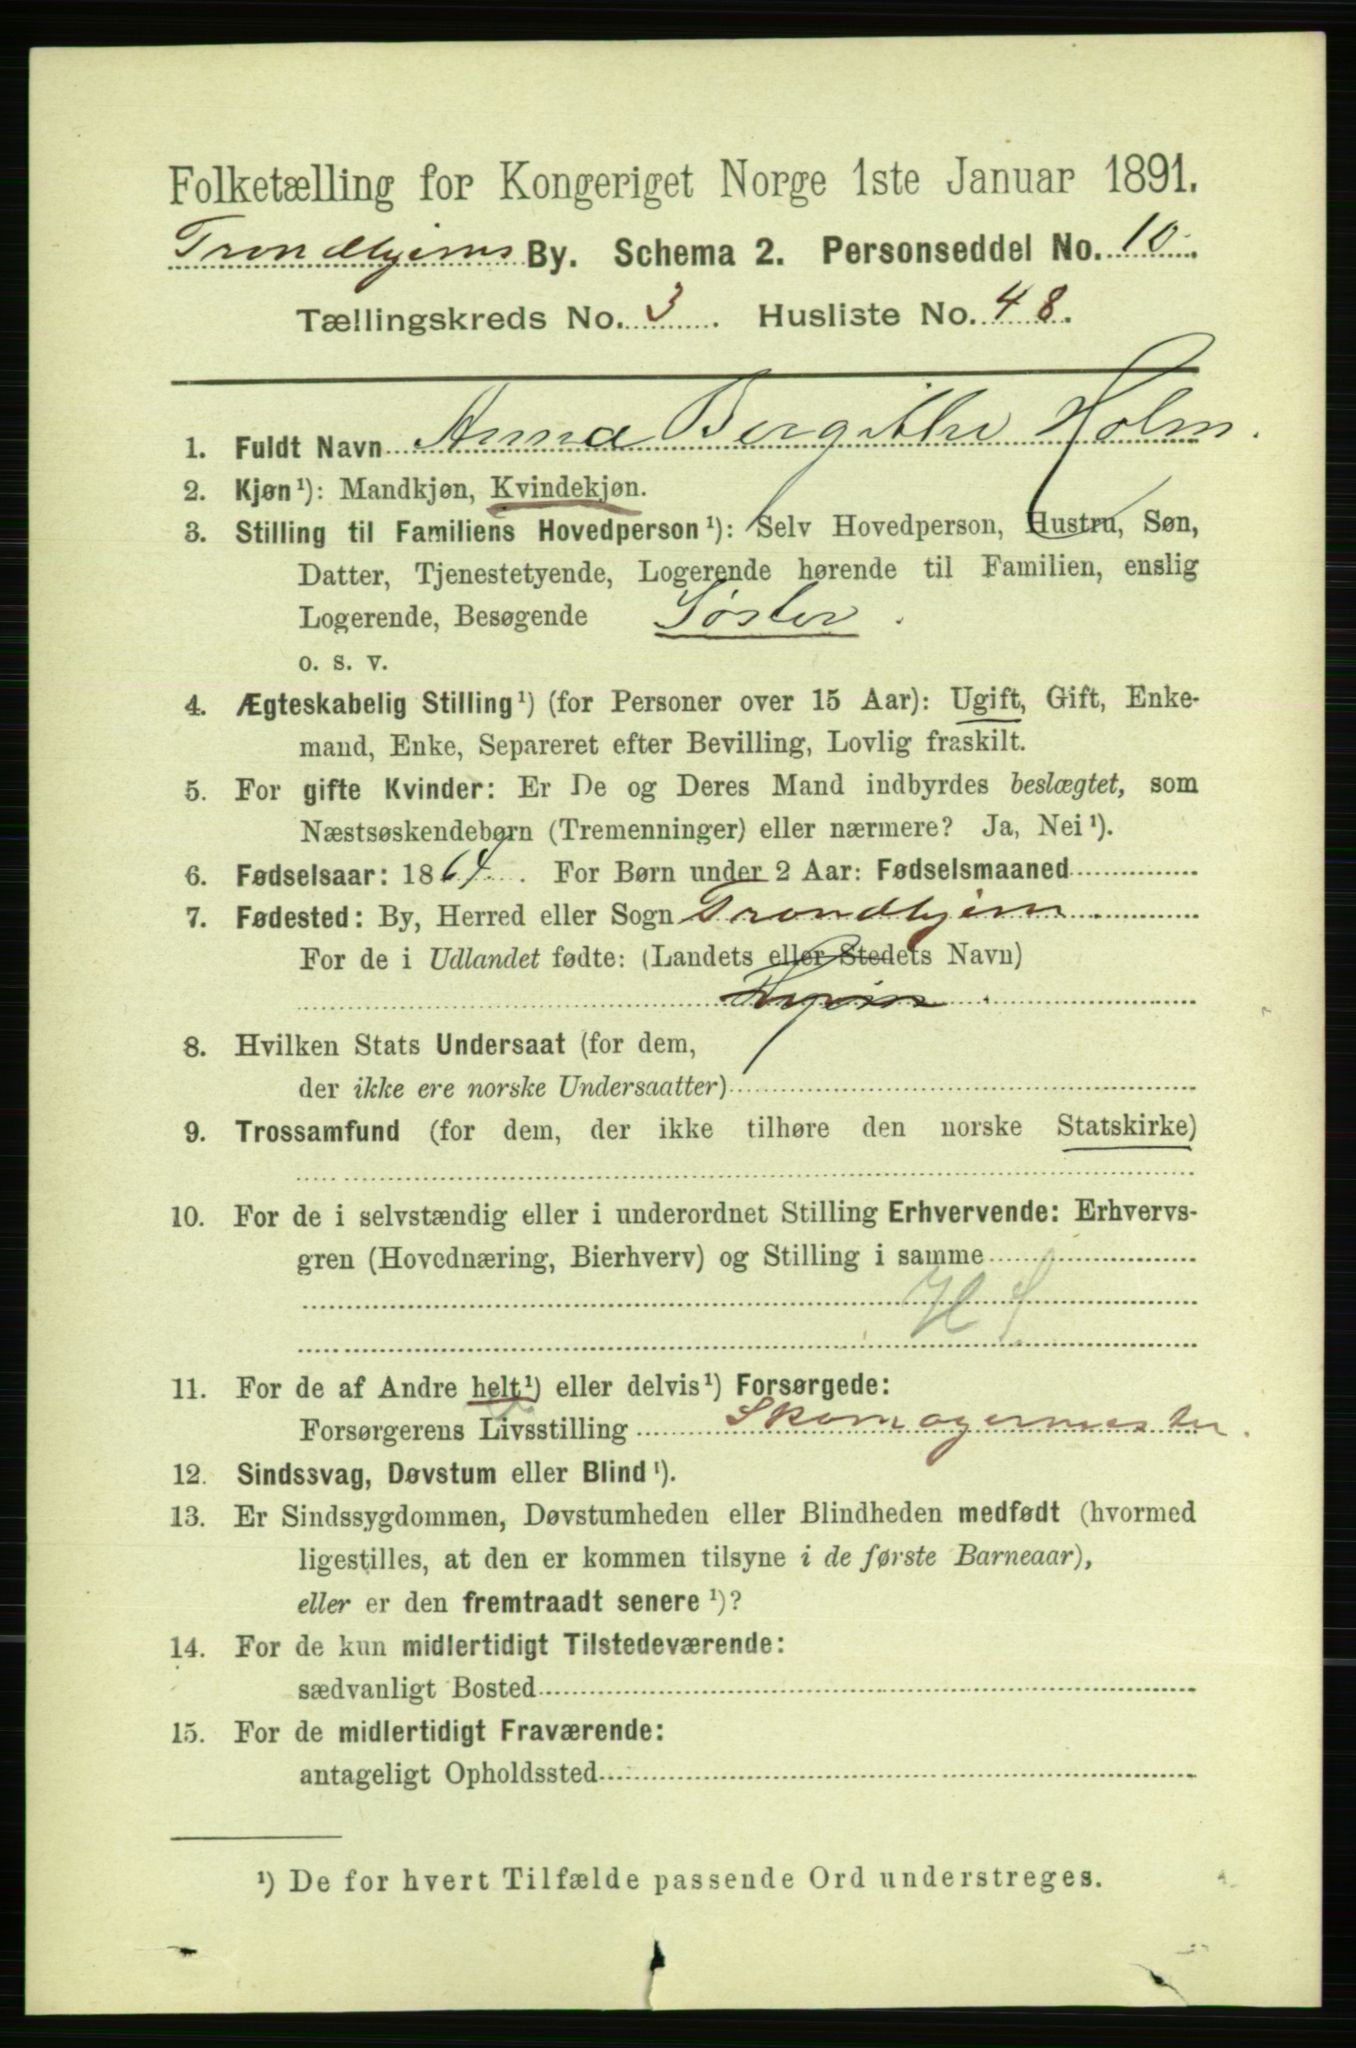 Folketælling for Kongeriget Norge 1ste Januar 1891.
Trondhjems By. Schema 2. Personseddel No. 10.
Tællingskreds No. 3. Husliste No. 48.
1. Fuldt Navn Anna Bergitthe Holm.
2. Kjøn¹): Mandkjøn, Kvindekjøn.
3. Stilling til Familiens Hovedperson¹): Selv Hovedperson, Hustru, Søn,
Datter, Tjenestetyende, Logerende hørende til Familien, enslig
Logerende, Besøgende Søster.
o. s. v.
4. Ægteskabelig Stilling¹) (for Personer over 15 Aar): Ugift, Gift, Enke-
mand, Enke, Separeret efter Bevilling, Lovlig fraskilt.
5. For gifte Kvinder: Er De og Deres Mand indbyrdes beslægtet, som
Næstsøskendebørn (Tremenninger) eller nærmere? Ja, Nei¹).
6. Fødselsaar: 1864. For Børn under 2 Aar: Fødselsmaaned
7. Fødested: By, Herred eller Sogn Trondhjem.
For de i Udlandet fødte: (Landets eller Stedets Navn)
8. Hvilken Stats Undersaat (for dem,
der ikke ere norske Undersaatter)
9. Trossamfund (for dem, der ikke tilhøre den norske Statskirke)
10. For de i selvstændig eller i underordnet Stilling Erhvervende: Erhvervs-
gren (Hovednæring, Bierhverv) og Stilling i samme
11. For de af Andre helt¹) eller delvis¹) Forsørgede:
Forsørgerens Livsstilling Skomagermester.
12. Sindssvag, Døvstum eller Blind¹).
13. Er Sindssygdommen, Døvstumheden eller Blindheden medfødt (hvormed
ligestilles, at den er kommen tilsyne i de første Barneaar),
eller er den fremtraadt senere ¹)?
14. For de kun midlertidigt Tilstedeværende:
sædvanligt Bosted
15. For de midlertidigt Fraværende:
antageligt Opholdssted
¹) De for hvert Tilfælde passende Ord understreges.